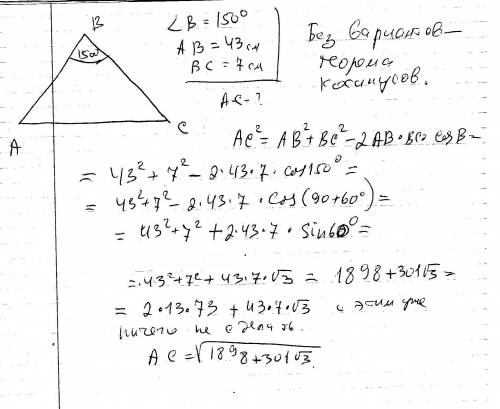 B
150°
A
C
∠B = 150°
AB = 43 см
BC = 7 см
AC - ?
Без вариантов -
теорема
косинусов.
AC² = AB² + BC² - 2AB·BC·cosB =
= 43² + 7² - 2·43·7·cos150° =
= 43² + 7² - 2·43·7·cos(90+60°) =
= 43² + 7² + 2·43·7·sin60° =
= 43² + 7² + 43·7·√3 = 1898 + 301√3 =
= 2·13·73 + 43·7·√3 с этим уже
ничего не сделать.
AC = √1898 + 301√3